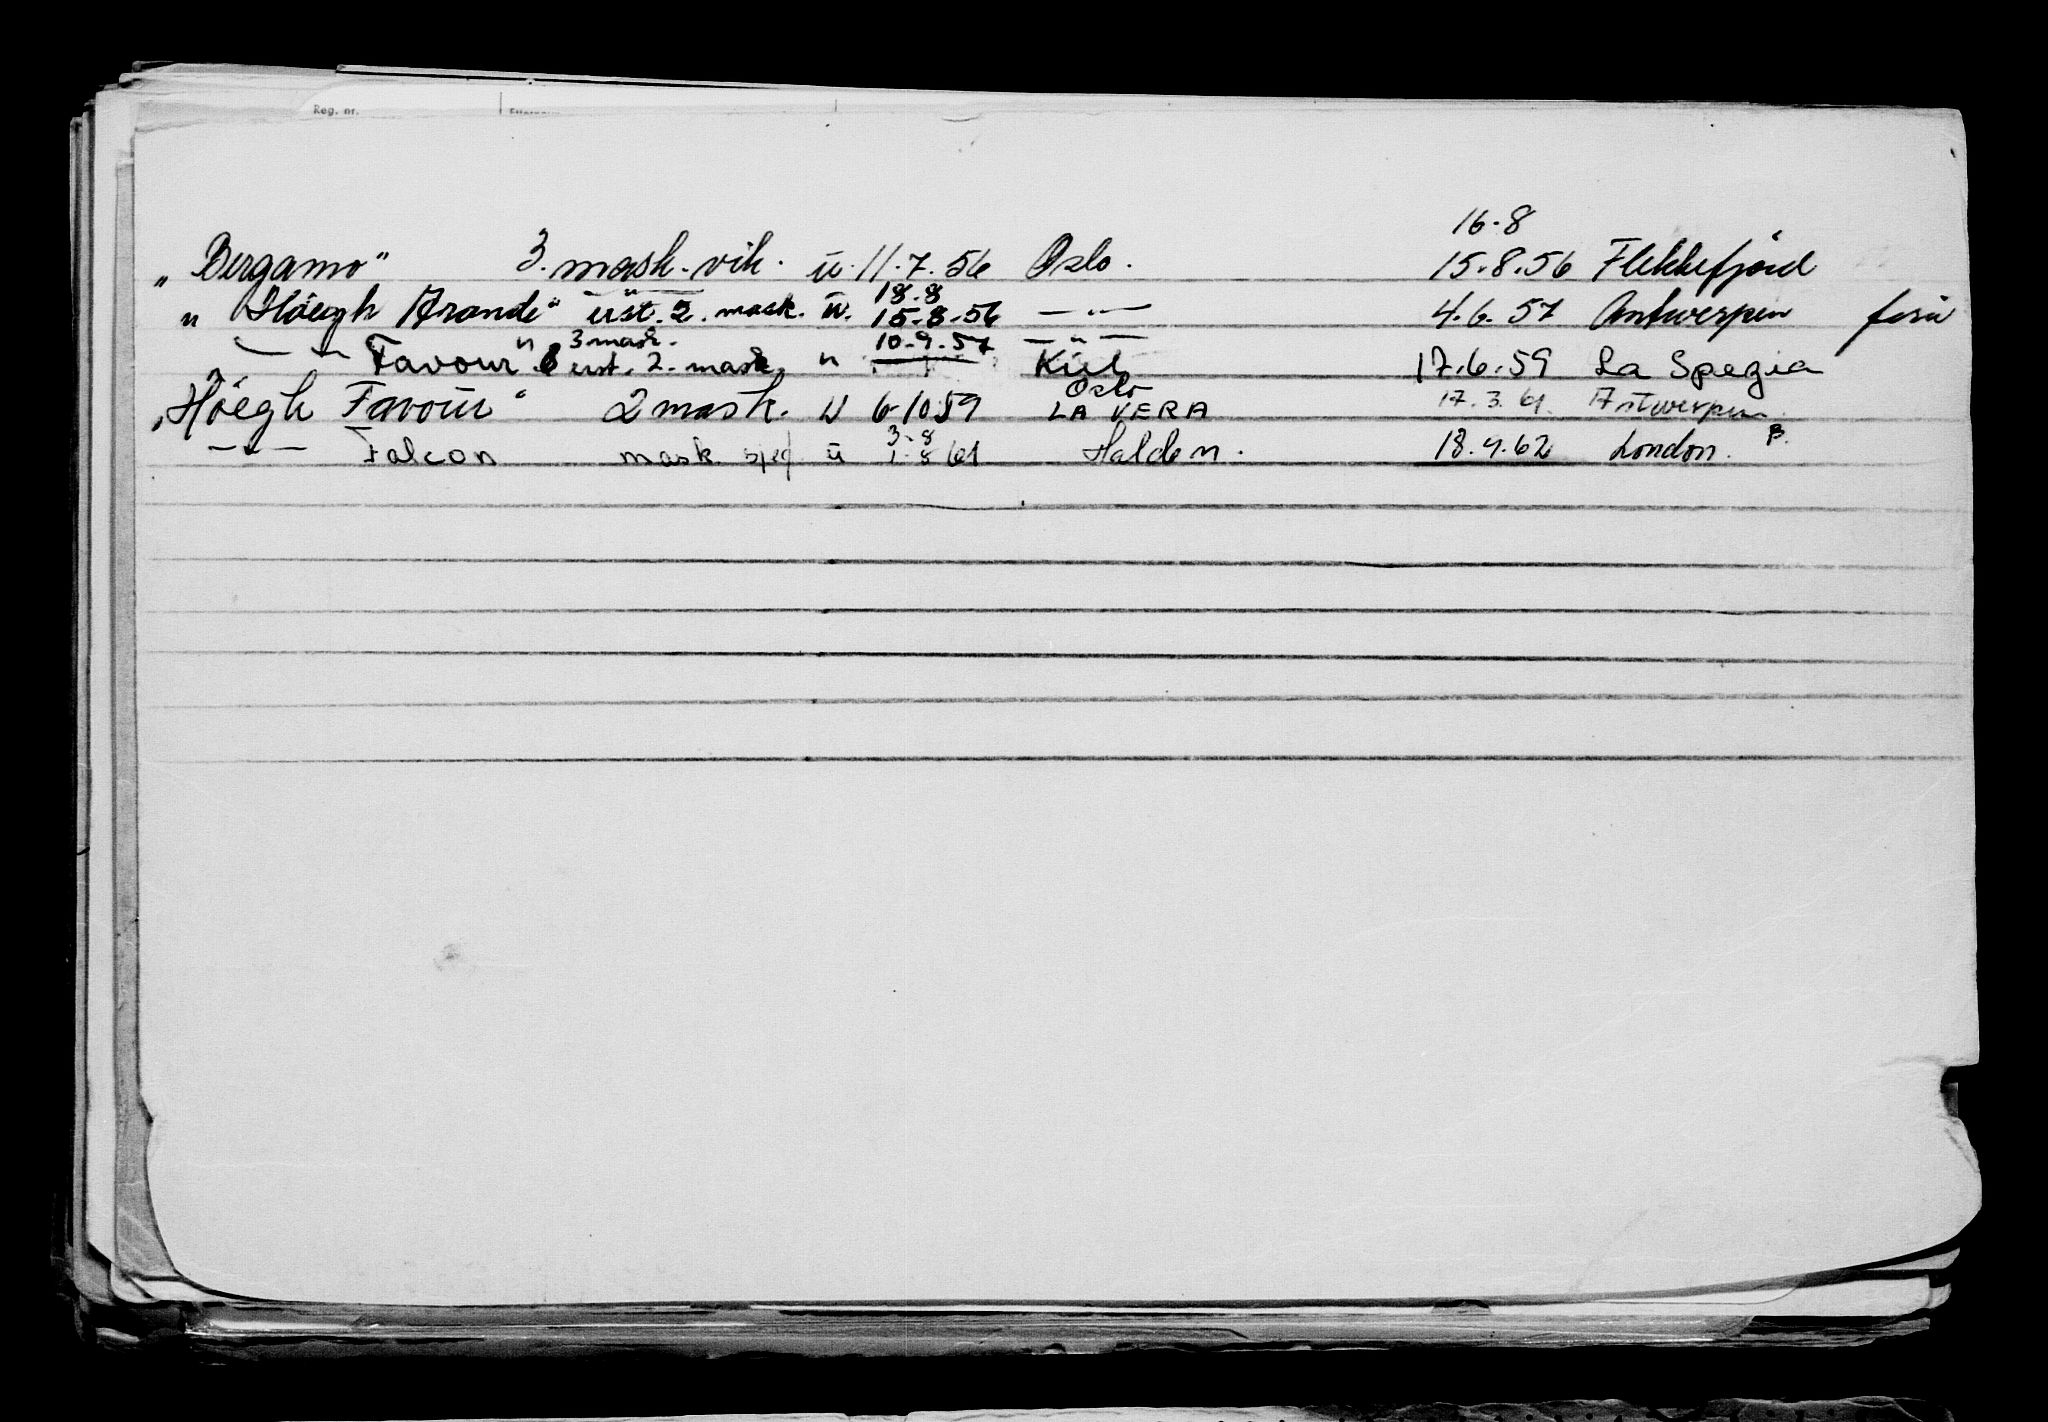 Reg. nr.
16-8
"Bergamo" 3. mask. vik. u. 11.7.56 Oslo. 15.8.56 Flekkefjord
18.8
" Höegh Arondé" ust. 2. mask. u. 15.8.56 — " — 4.6.57 Antwerpen
3 mask. 10.9.57 — " —
— " — Favour" ust. 2. mask. " Kiel 17.6.59 La Spezia
Oslo
"Höegh Favour" 2 mask. u 6-10 59 LA VERA 17.3.61. Antwerpen.
3-8
— " — Falcon mask. u 1-8 61 Halden. 18.4.62 London. B.